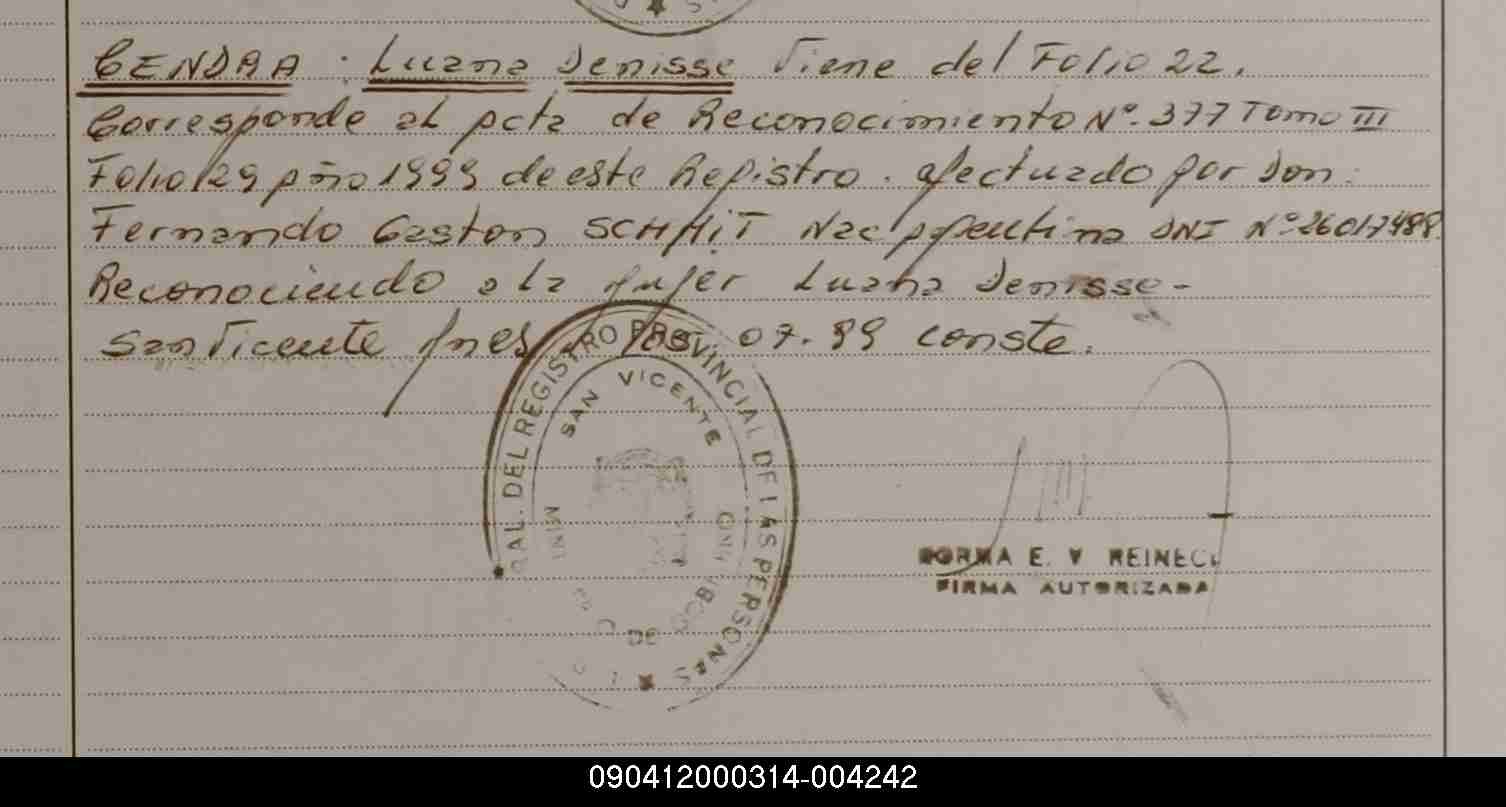 CENDRA . Luana Denisse Viene del Folio 22.
Corresponde al Acta de Reconocimiento Nº. 377 Tomo III
Folio 129 Año 1999 de este Registro. efectuado por Don.
Fernando Gaston SCHMIT Nac Argentina DNI Nº 26017488
Reconociendo a la Luana Denisse-
San Vicente 07.99 conste.
RAL. DEL REGISTRO PROVINCIAL DE LAS PERSONAS
SAN VICENTE
MINI DE GOBIERNO
NORMA E. V REINEC
FIRMA AUTORIZADA
090412000314-004242